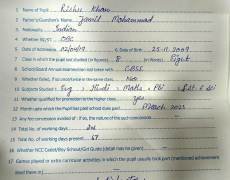 1. Name of Pupil Rishu Khan
2. Father's/Guardian's Name Jamil Mohammad
3. Nationality Indian
4. Whether SC/ST OBC
5. Date of Admission 02/04/19 6. Date of Birth 25.11.2009
7. Class in which the pupil last studied (in figures) 8 (in Words) Eight
8. School/Board Annual examination last taken with CBSE
9. Whether failed, if so once/twice in the same class No
10. Subjects Studied : Eng, Hindi, Maths,
11. Whether qualified for promotion to the higher class Yes
12. Month upto which the Pupil had paid school dues March 2023
13. Any fee concession availed of : if so, the nature of such concession
14. Total No. of working days
15. Total No. of working days present 67
16. Whether NCC Cadet/Boy School/Girl Guide (detail may be given)
17. Games played or extra curricular activities in which the pupil usually took part (mentioned achievement
level there in)